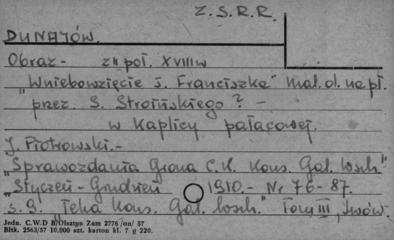 Z.S.R.R.
DUNAJÓW.
Obraz - z II poł. XVIII w
"Wniebowzięcie ś. Franciszka" mal. ol. na pł.
przez S. Stroińskiego? -
w Kaplicy pałacowej.
J. Piotrowski. -
"Sprawozdania Grona C.K. Kons. Gal. wsch."
"Styczeń - Grudzień 1910. - Nr 76 - 87.
s. 9. "Teka Kons. Gal. wsch." Tom III, Lwów.
Jedn. C.W.D Olsztyn Zam 2776/on/57
Bltk. 2563/57 10.000 szt. karton kl. 7 g 220.